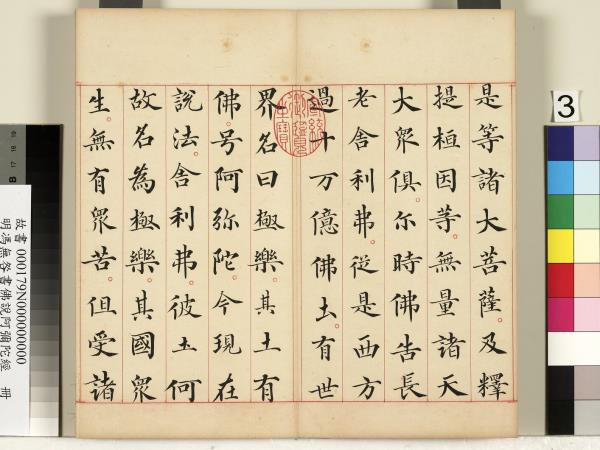 是等諸大菩薩及釋
提桓因等無量諸天
大眾俱尔時佛告長
老舍利弗從是西方
過十万億佛土有世
界名曰極樂其土有
佛号阿弥陀今現在
說法舍利弗彼土何
故名為極樂其國眾
生無有眾苦但受諸
3
故書 000179N000000000
明馮無咎書佛說阿彌陀經 冊